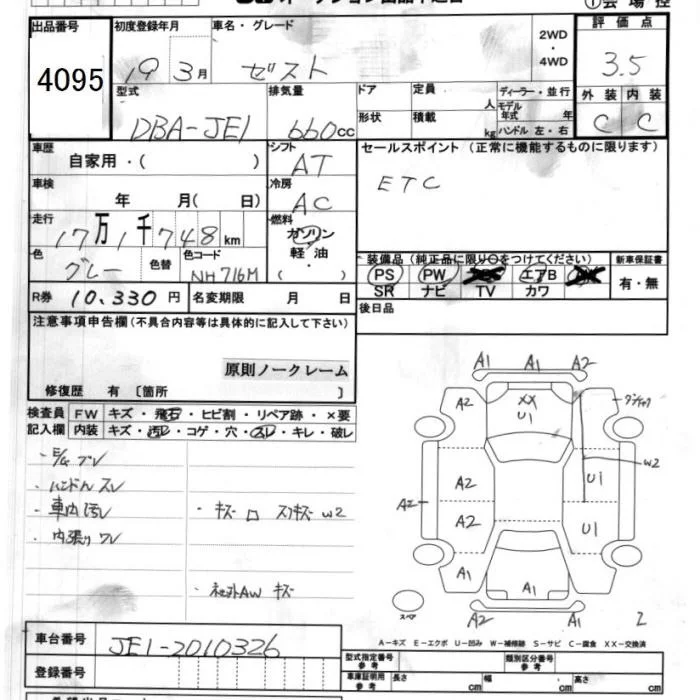 出品番号 初度登録年月 車名・グレード 2WD・4WD 評価点
4095 19 3月 ゼスト 3.5
型式 排気量 ドア 定員 人 ディーラー・並行 外装 内装
DBA-JE1 660cc 形状 積載 kg モデル年式 年 C C
ハンドル 左・右
車歴 自家用・( ) シフト AT セールスポイント (正常に機能するものに限ります)
車検 年 月( 日) 冷房 AC ETC
走行 17万1千748km 燃料 ガソリン 軽油 ・ ( )
色 グレー 色替 色コード NH716M
装備品 (純正品に限り○をつけてください) 新車保証書
PS PW エアB 有・無
SR ナビ TV カワ
R券 10,330円 名変期限 月 日 後日品
注意事項申告欄(不具合内容等は具体的に記入して下さい)
原則ノークレーム
修復歴 有 〔箇所 〕
検査員 FW キズ・飛石・ヒビ割・リペア跡・×要
記入欄 内装 キズ・汚レ・コゲ・穴・スレ・キレ・破レ
・ハンドル スレ
・車内汚レ
・内張り ワレ
・キズ ロ スリキズ W2
・社外AW キズ
A1 A1 A2
A2 XX U1
W2
A2 U1
A2 A2 U1
A1 A1
スペア A2 A1 2
A-キズ E-エクボ U-凹み W-補修跡 S-サビ C-腐食 XX-交換済
車台番号 JE1-2010326
型式指定番号 参考 類別区分番号 参考
登録番号 車庫証明用 参考 長さ cm 幅 cm 高さ cm